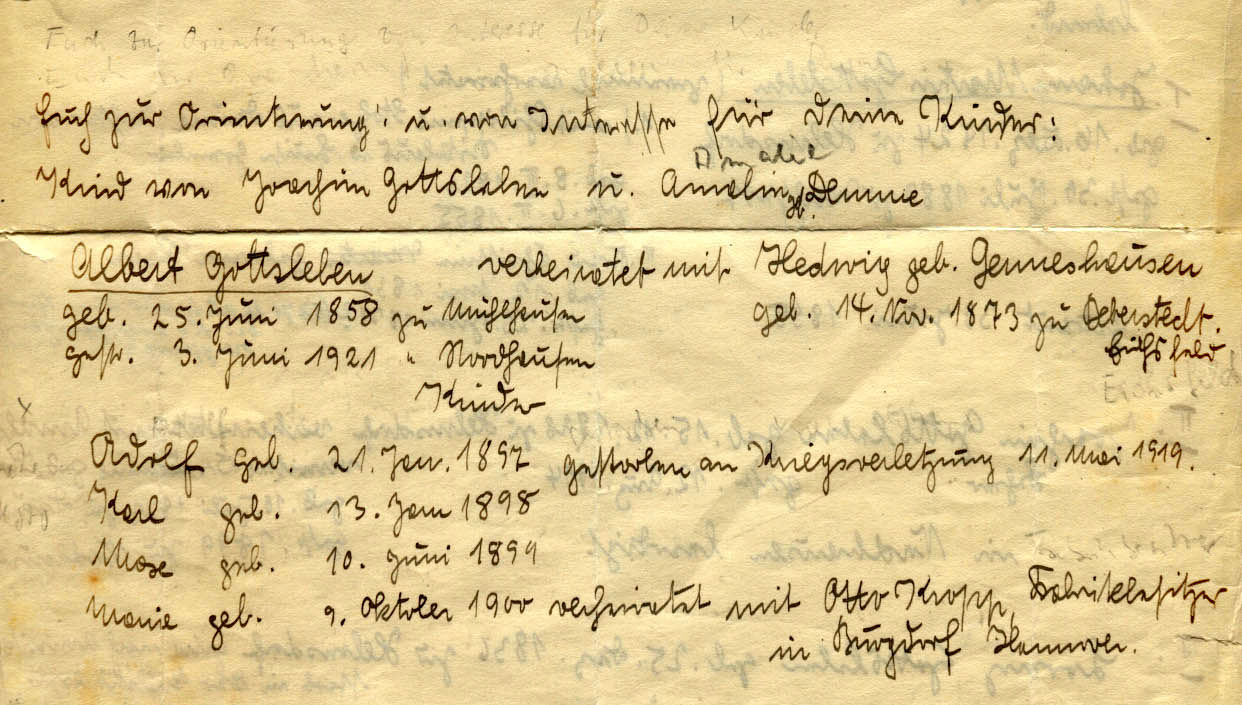 Euch zur Orientierung u. von Interesse für Deine Kinder
Euch zur Orientierung! u. von Interesse für Deine Kinder:
Amalie
Kind von Joachim Gottsleben u. Amalin gb. Demme
Albert Gottsleben verheiratet mit Hedwig geb. Genneshausen
geb. 25. Juni 1858 zu Mühlhausen geb. 14. Nov. 1873 zu Beberstedt.
gest. 3. Juni 1921 " Nordhausen Eichsfeld
Kinder
Adolf geb. 21. Jan. 1897 gestorben an Kriegsverletzung 11. Mai 1919.
Karl geb. 13. Jan 1898
geb. 10. Juni 1899
Marie geb. 9. Oktober 1900 verheiratet mit Otto Kropp, Fabrikbesitzer
in Burgdorf Hannover.